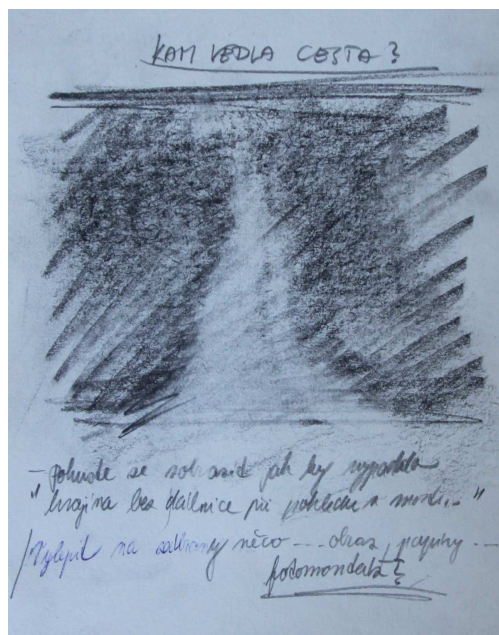 KAM VEDLA CESTA?
- Pokuste se zobrazit jak by vypadala
"krajina bez dálnice při pohledu z mostu.."
Vylepit na něco --- obraz, papíry ---
fotomontáž?